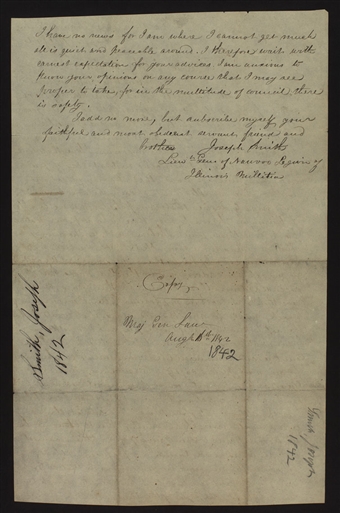 I have no news for I am where I cannot get much
all is quiet and peacable around. I therefore wait with
earnest expectation for your advices. I am anxious to
know your opinions on any course that I may see
proper to take, for in the multitude of council, there
is safety.
I add no more, but subscribe myself your
faithful and most obedient servant, friend and
brother Joseph Smith
Lieut Gen of Nauvoo Legion of
Illinois Militia
Copy,
Maj Gen Law
Augt 16th 1842
1842
Smith, Joseph
1842
Smith Joseph
1842